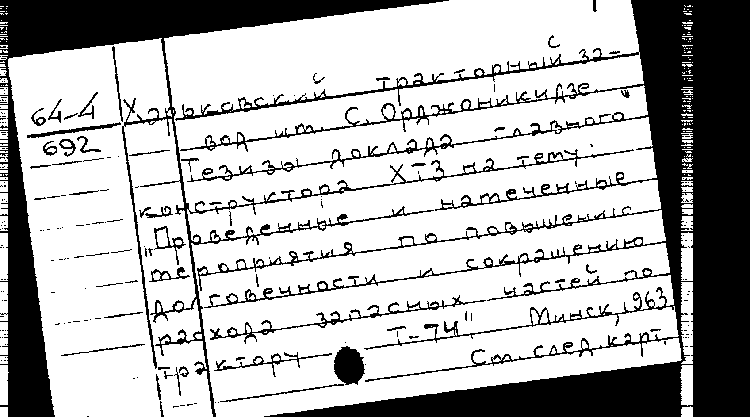 64-4
692
Харьковский тракторный за-
вод им. С. Орджоникидзе.
Тезисы доклада главного
конструктора ХТЗ на тему:
"Проведенные и намеченные
мероприятия по повышению
долговечности и сокращению
расхода запасных частей по
трактору Т-74". Минск, 1963.
См. след. карт.